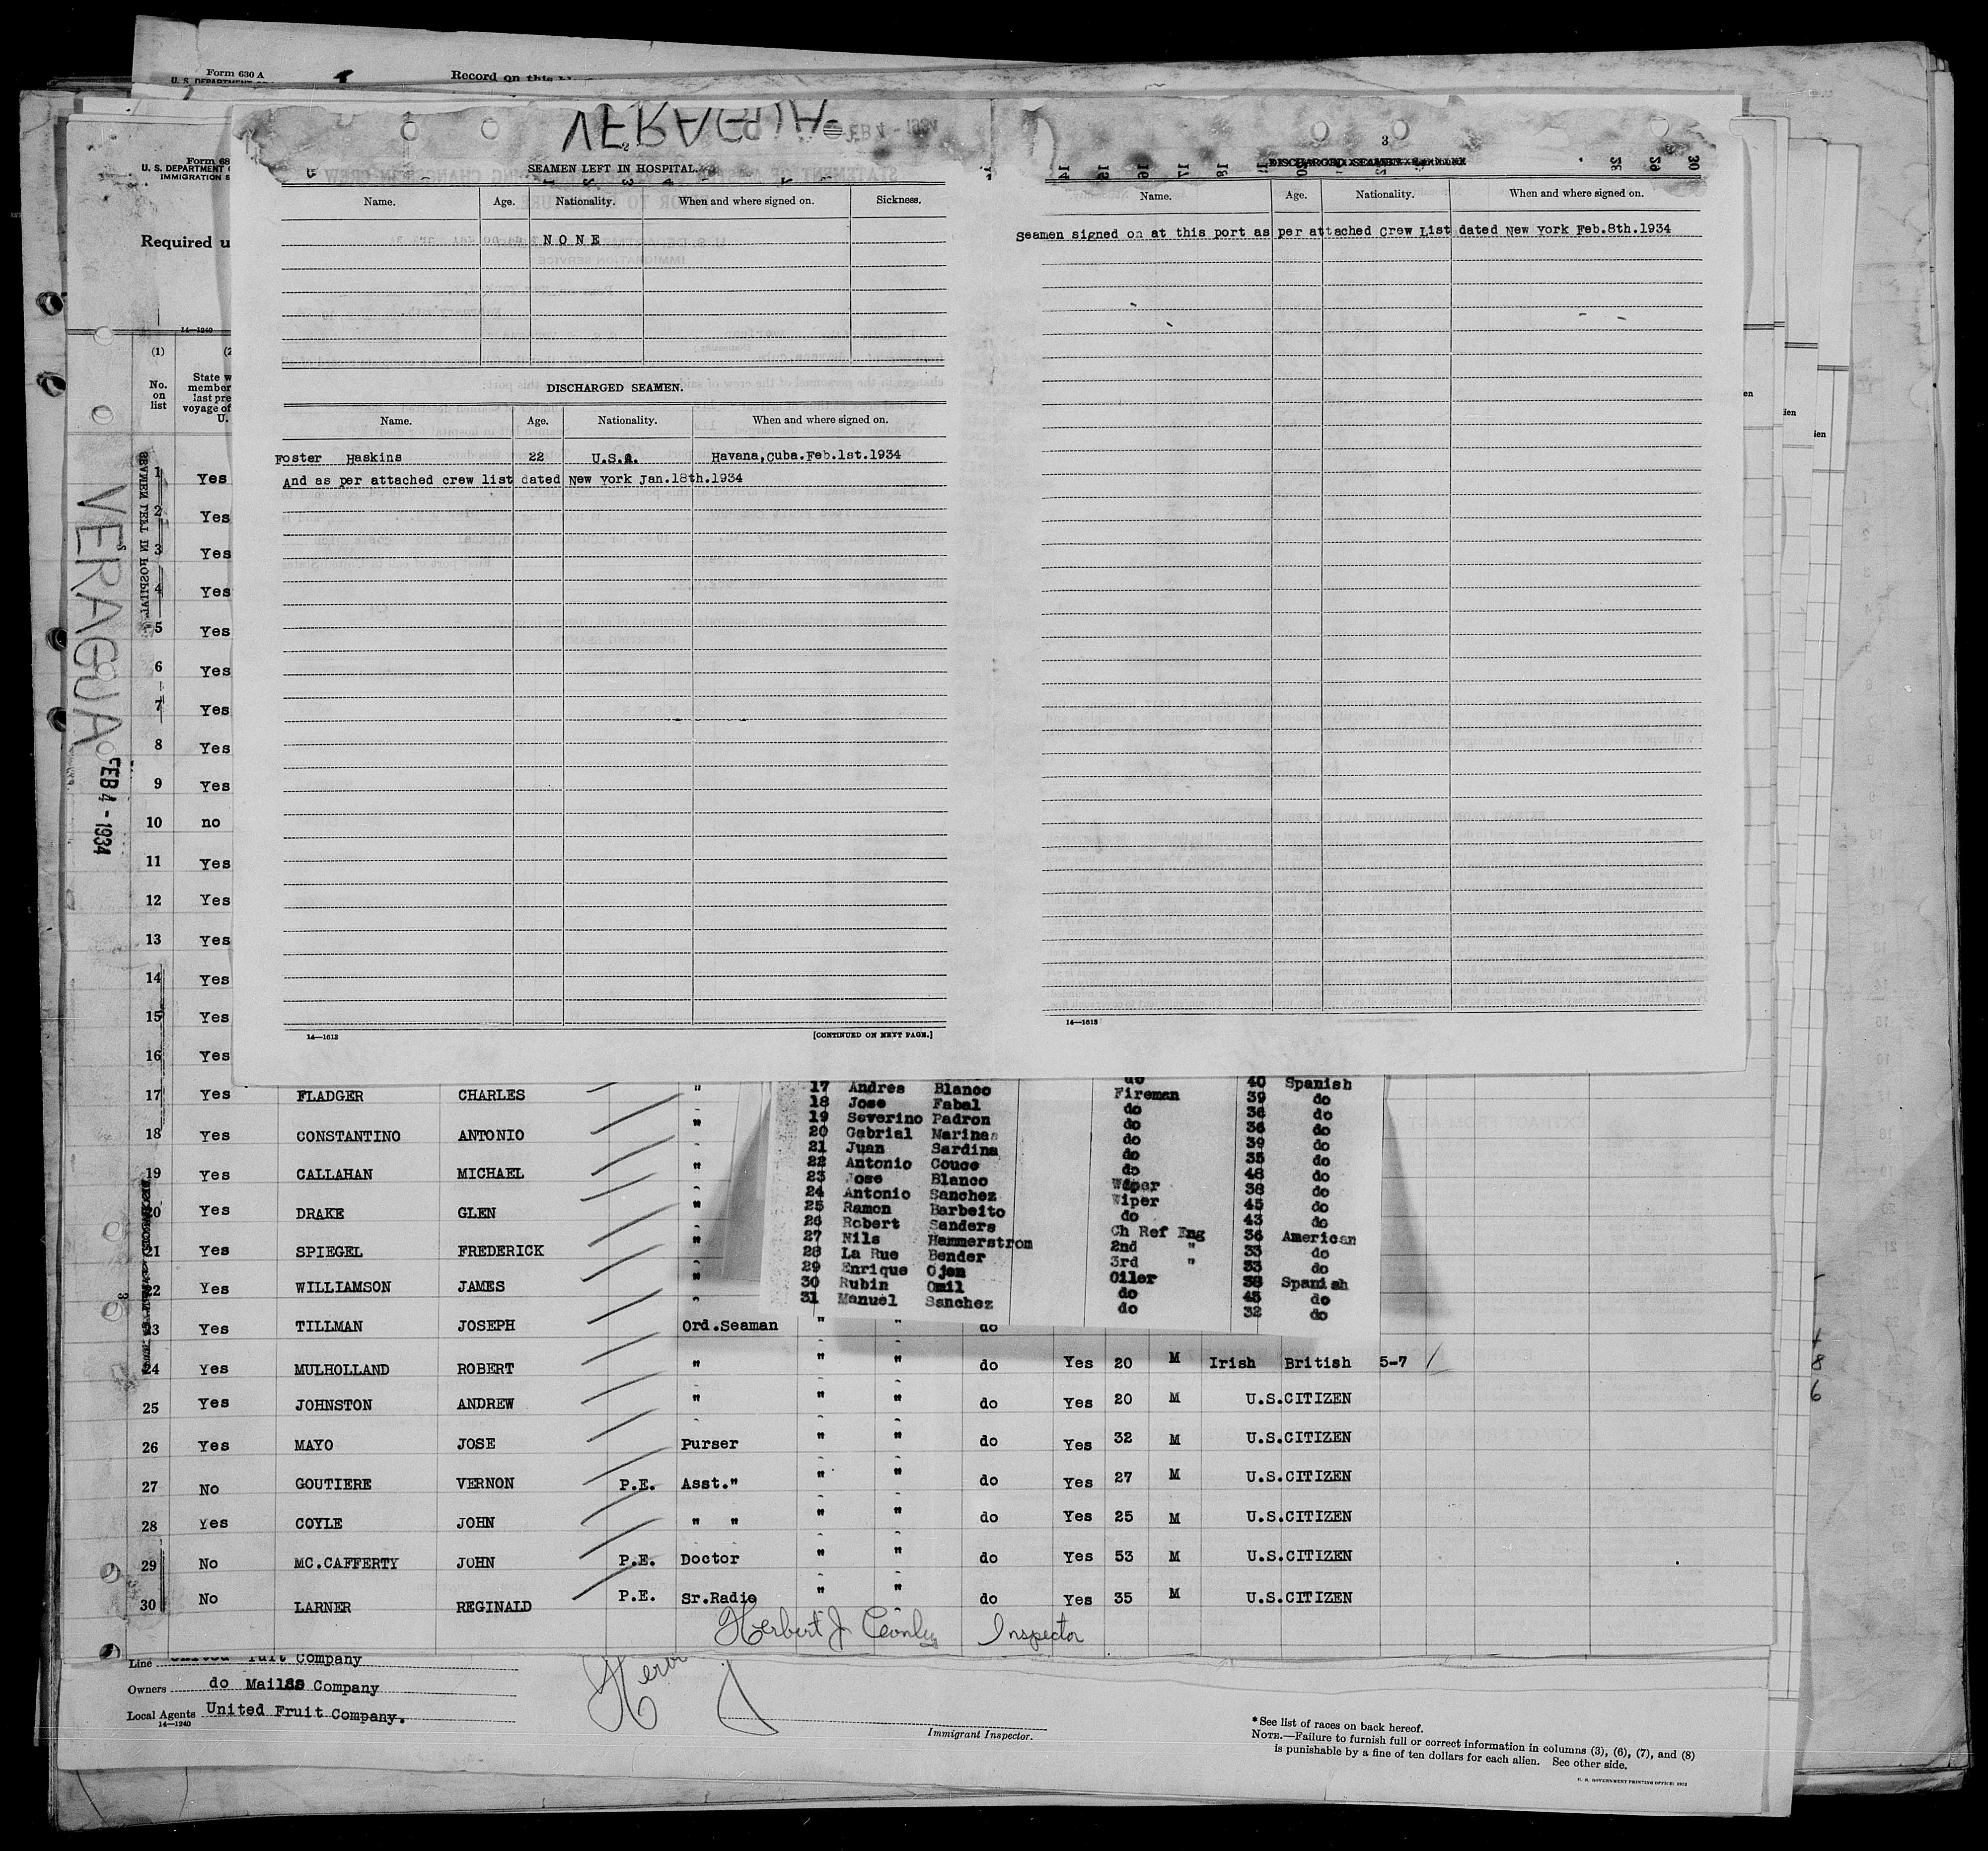 Form 630 A
Record on this
VERAGUA
FEB 4 - 1934
2
SEAMEN LEFT IN HOSPITAL.
Name. Age. Nationality. When and where signed on. Sickness.
NONE
DISCHARGED SEAMEN.
Name. Age. Nationality. When and where signed on.
Foster Haskins 22 U.S.A. Havana,Cuba.Feb.1st.1934
And as per attached crew list dated New York Jan.18th.1934
14—1613 [CONTINUED ON NEXT PAGE.]
3
DISCHARGED SEAMEN
Name. Age. Nationality. When and where signed on.
Seamen signed on at this port as per attached Crew List dated New York Feb.8th.1934
14—1613
Form 68
U. S. DEPARTMENT
IMMIGRATION S
Required u
14—1240
(1)
No. on list
State w
member
last pre
voyage of
U.
VERAGUA
FEB 4 - 1934
SEAMEN LEFT IN HOSPITAL.
1 Yes
2 Yes
3 Yes
4 Yes
5 Yes
6 Yes
7 Yes
8 Yes
9 Yes
10 no
11 Yes
12 Yes
13 Yes
14 Yes
15 Yes
16 Yes
17 Yes FLADGER CHARLES "
18 Yes CONSTANTINO ANTONIO "
19 Yes CALLAHAN MICHAEL "
20 Yes DRAKE GLEN "
21 Yes SPIEGEL FREDERICK "
22 Yes WILLIAMSON JAMES "
23 Yes TILLMAN JOSEPH Ord.Seaman " " do
24 Yes MULHOLLAND ROBERT " " " do Yes 20 M Irish British 5-7
25 Yes JOHNSTON ANDREW " " " do Yes 20 M U.S.CITIZEN
26 Yes MAYO JOSE Purser " " do Yes 32 M U.S.CITIZEN
27 No GOUTIERE VERNON P.E. Asst." " " do Yes 27 M U.S.CITIZEN
28 Yes COYLE JOHN " " " " do Yes 25 M U.S.CITIZEN
29 No MC.CAFFERTY JOHN P.E. Doctor " " do Yes 53 M U.S.CITIZEN
30 No LARNER REGINALD P.E. Sr.Radio " " do Yes 35 M U.S.CITIZEN
17 Andres Blanco do 40 Spanish
18 Jose Fabal Fireman 39 do
19 Severino Padron do 36 do
20 Gabrial Marinas do 36 do
21 Juan Sardina do 39 do
22 Antonio Couce do 35 do
23 Jose Blanco do 48 do
24 Antonio Sanchez Wiper 38 do
25 Ramon Barbeito Wiper 45 do
26 Robert Sanders do 43 do
27 Nils Hammerstrom Ch Ref Eng 36 American
28 La Rue Bender 2nd " 33 do
29 Enrique Ojen 3rd " 33 do
30 Rubin Omil Oiler 38 Spanish
31 Manuel Sanchez do 45 do
do 32 do
Herbert J Inspector
Line United Fuit Company
Owners do Mail SS Company
Local Agents United Fruit Company.
14—1240
Immigrant Inspector.
*See list of races on back hereof.
NOTE.—Failure to furnish full or correct information in columns (3), (6), (7), and (8)
is punishable by a fine of ten dollars for each alien. See other side.
U. S. GOVERNMENT PRINTING OFFICE: 1932